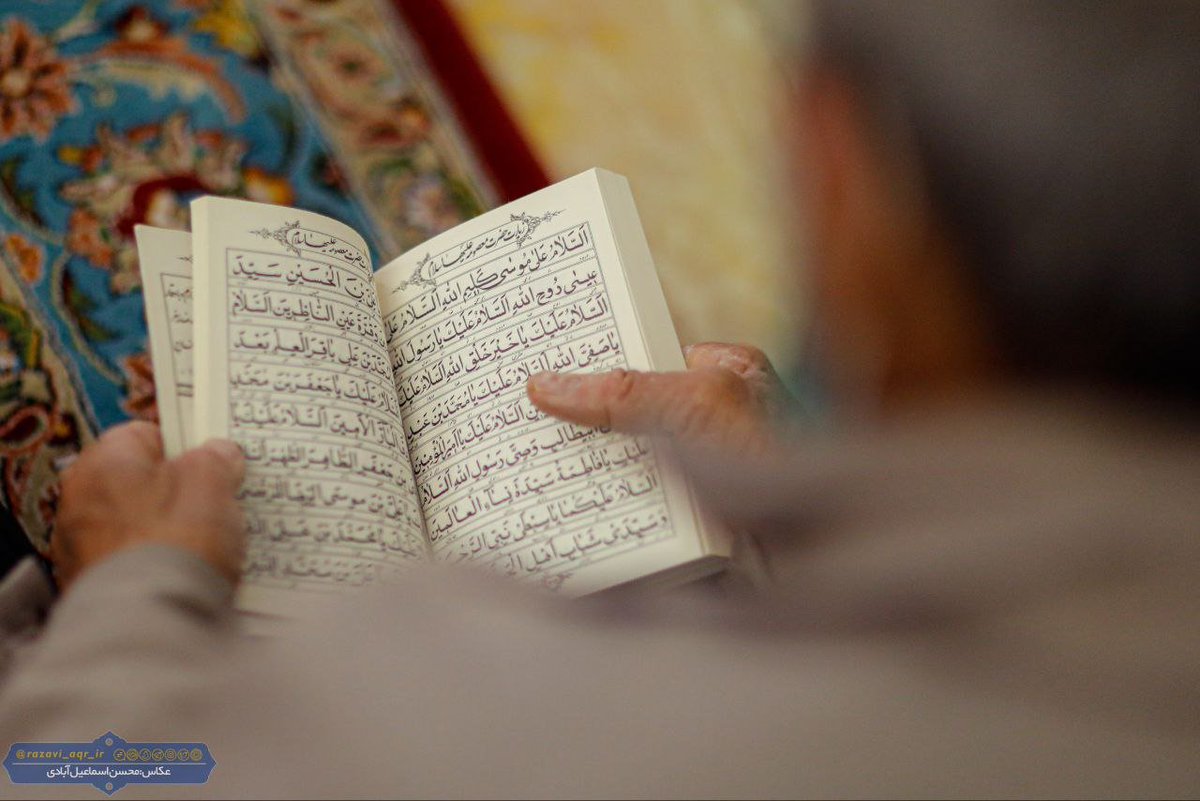 زیارت حضرت معصومه علیها سلام
اَلسَّلامُ عَلیٰ مُوسٰی کَلیمِ اللهِ اَلسَّلامُ عَلیٰ
عیسٰی رُوحِ اللهِ اَلسَّلامُ عَلَیْكَ یا رَسُولَ اللهِ
اَلسَّلامُ عَلَیْكَ یا خَیْرَ خَلْقِ اللهِ اَلسَّلامُ عَلَیْكَ
یا صَفِیَّ اللهِ اَلسَّلامُ عَلَیْكَ یا مُحَمَّدَ بْنَ عَبْدِ
اَلسَّلامُ عَلَیْكَ یا اَمیرَالْمُؤْمِنینَ
اَبیطالِبٍ وَصِیَّ رَسُولِ اللهِ اَلسَّلامُ
عَلَیْكِ یا فاطِمَةُ سَیِّدَةَ نِسآءِ الْعالَمینَ
اَلسَّلامُ عَلَیْکُما یا سِبْطَیْ نَبِیِّ
وَ سَیِّدَیْ شَبابِ اَهْلِ
حضرت معصومه علیها سلام
بْنَ الْحُسَیْنِ سَیِّدَ
قُرَّةَ عَیْنِ النّاظِرینَ اَلسَّلامُ
بْنَ عَلِیٍّ باقِرَ الْعِلْمِ بَعْدَ
عَلَیْكَ یا جَعْفَرَ بْنَ مُحَمَّدٍ
الْبآرَّ الْاَمینَ اَلسَّلامُ عَلَیْكَ یا
بْنَ جَعْفَرٍ الطّاهِرَ الطُّهْرَ
یا عَلِیَّ بْنَ مُوسَی الرِّضَا الْمُرْتَضٰی
یا مُحَمَّدَ بْنَ عَلِیٍّ
بْنَ مُحَمَّدٍ
@razavi_aqr_ir
عکاس:محسن اسماعیل‌آبادی